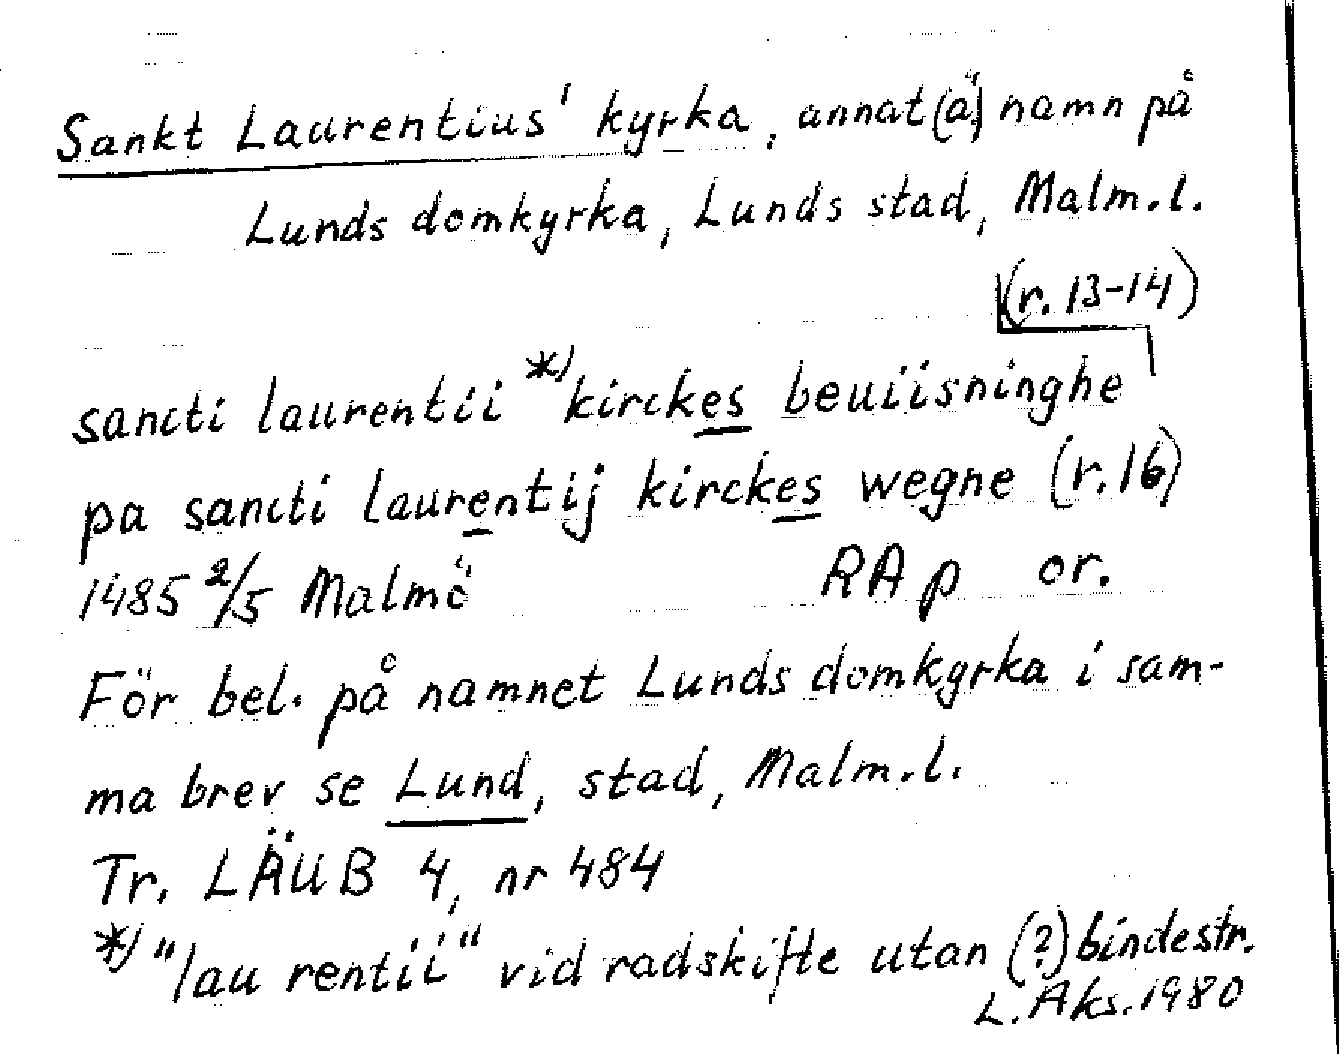 Sankt Laurentius' kyrka, annat (ä.) namn på
Lunds domkyrka, Lunds stad, Malm.l.
(r. 13-14)
sancti laurentii *) kirckes beuiisninghe
pa sancti laurentij kirckes wegne (r.16)
1485 2/5 Malmö RA p or.
För bel. på namnet Lunds domkyrka i sam-
ma brev se Lund, stad, Malm.l.
Tr. LÄUB 4, nr 484
*) "lau rentii" vid radskifte utan (?) bindestr.
L. Aks. 1980